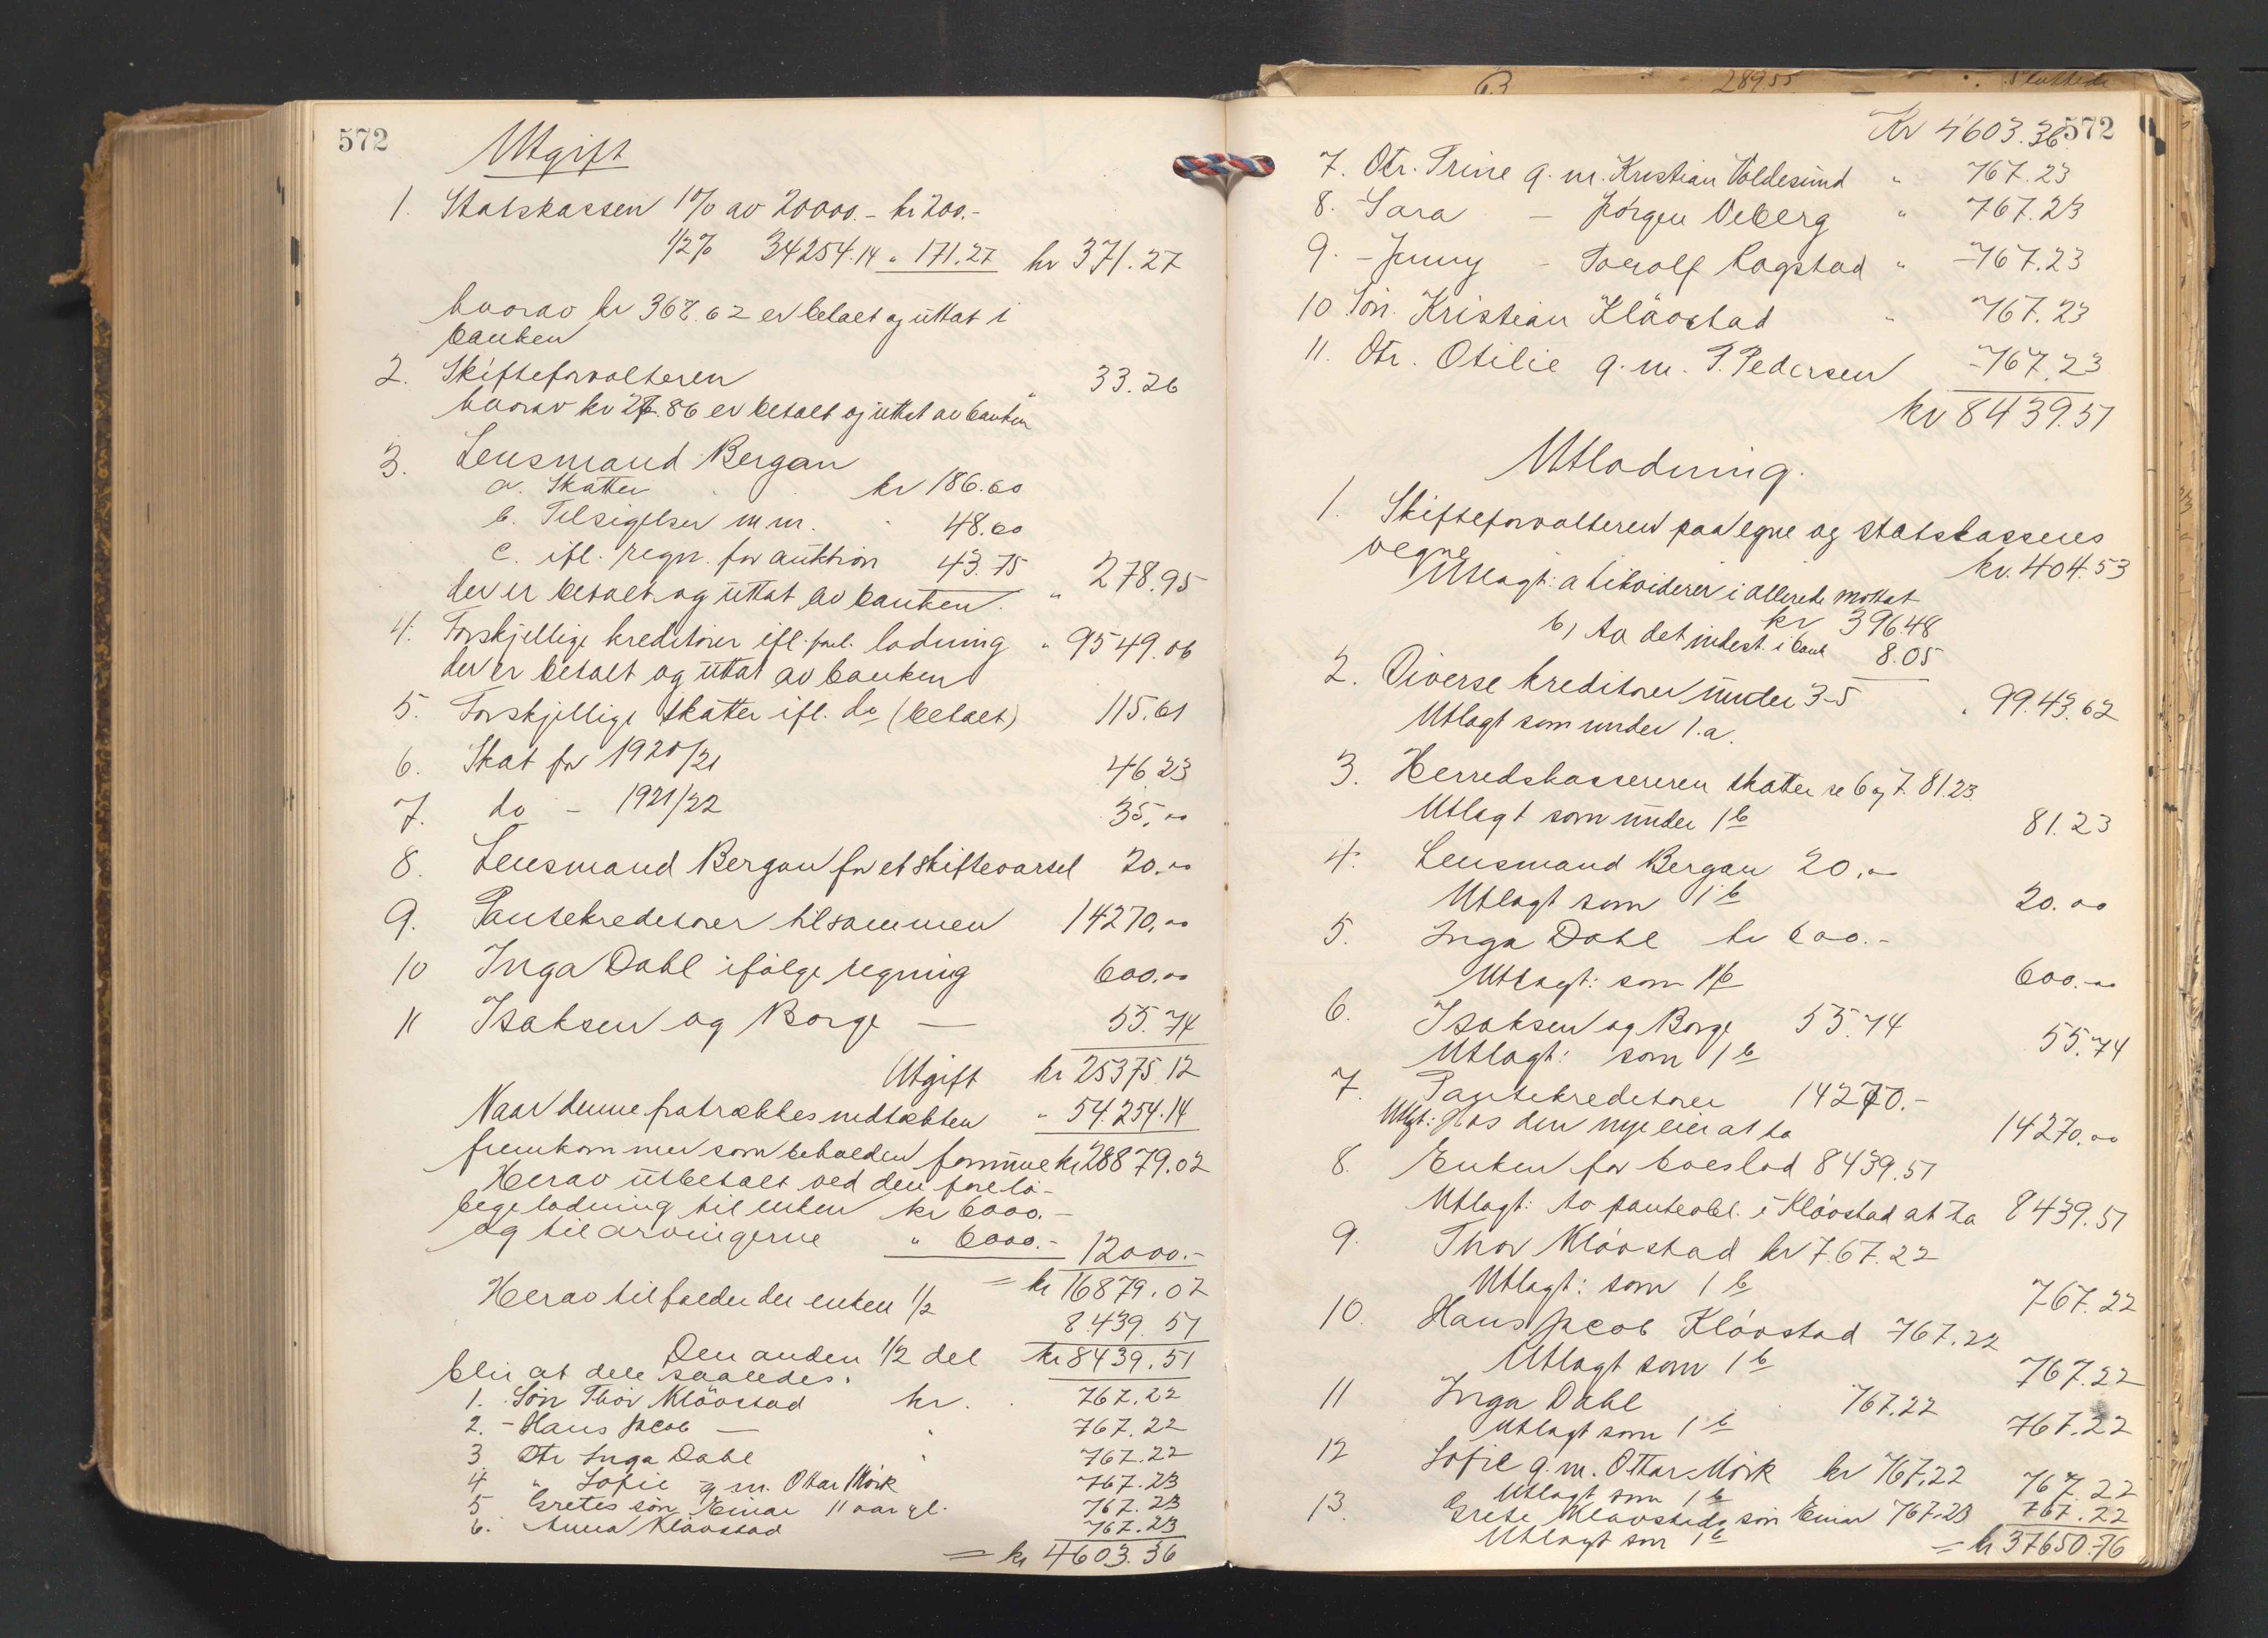 572
Utgift
1. Statskassen 1% av 20000.- kr 200.-
1/2% 34254.14 " 171.27 kr 371.27
hvorav kr 368.62 er betalt og uttat i
banken
2. Skifteforvalteren " 33.26
hvorav kr 27.86 er betalt og uttat av banken
3. Lensmand Bergan
a. Skatter kr 186.60
b. Tilsigelser m.m. " 48.60
c. ifl. regn. for auktion 43.75
der er betalt og uttat av banken. " 278.95
4. Forskjellige kreditorer ifl. forel. lodning " 9549.06
der er betalt og uttat av banken
5. Forskjellige skatter ifl. do (betalt) 115.61
6. Skat for 1920/21 46 23
7. do - 1921/22 35,00
8. Lensmand Bergan for et skiftevarsel 20.00
9. Pantekreditorer tilsammen 14270,00
10 Inga Dahl ifølge regning 600.00
11 Isaksen og Borge — 55.74
Utgift kr 25375.12
Naar denne fratrækkes indtækten " 54.254.14
fremkommer som beholden formue kr 28879.02
Herav utbetalt ved den forelø-
bige lodning til enken kr 6000.-
og til arvingerne " 6000.- 12000.-
= kr 16879.02
Herav tilfalder der enken 1/2 8.439.51
Den anden 1/2 del kr 8439.51
blir at dele saaledes:
1. Søn Thor Kløvstad kr. 767.22
2. - Hans Jacob — " 767.22
3 Dtr Inga Dahl " 767.22
4 " Sofie g.m. Ottar Mørk 767.23
5 Gretes søn Einar 11 aar gl. 767.23
6. Anna Kløvstad 767.23
= kr 4603.36
63 289.55 Sluttede
Kr 4603.36 572
7. Dtr. Trine g.m. Kristian Valdesund " 767.23
8. Sara — Jørgen Veberg " 767.23
9. - Jenny — Torolf Bagstad " 767.23
10 Søn. Kristian Kløvstad " 767.23
11. Dtr. Otilie g.m. P. Pedersen 767.23
kr 8439.51
Utlodning.
1. Skifteforvalteren paa egne og statskassens
vegne kr. 404.53
Utlagt: a Likviderer i allerede mottat
kr 396.48
b, Av det indest. i bank 8.05
2. Diverse kreditorer under 3-5 " 9943.62
Utlagt som under 1.a.
3. Herredskassereren skatter se 6 og 7. 81.23
Utlagt som under 1 b 81.23
4. Lensmand Bergan 20,00
Utlagt som 1 b 20.00
5. Inga Dahl kr 600.-
Utlagt: som 1 b 600.00
6. Isaksen og Borge 55.74
Utlagt: som 1 b 55.74
7. Pantekreditorer 14270.-
Utlgt: Hos den nye eier at ta 14270,00
8. Enken for boeslod 8439.51
Utlagt: Av panteobl. i Kløvstad at ta 8439.51
9. Thor Kløvstad kr 767.22
Utlagt: som 1 b 767.22
10. Hans Jacob Kløvstad 767.22
Utlagt som 1 b 767.22
11 Inga Dahl 767.22
Utlagt som 1 b 767.22
12 Sofie g.m. Ottar Mørk kr 767.22
Utlagt som 1 b 767.22
13. Grete Kløvstads søn Einar 767.23
Utlagt som 1 b 767.22
= kr 37650.76